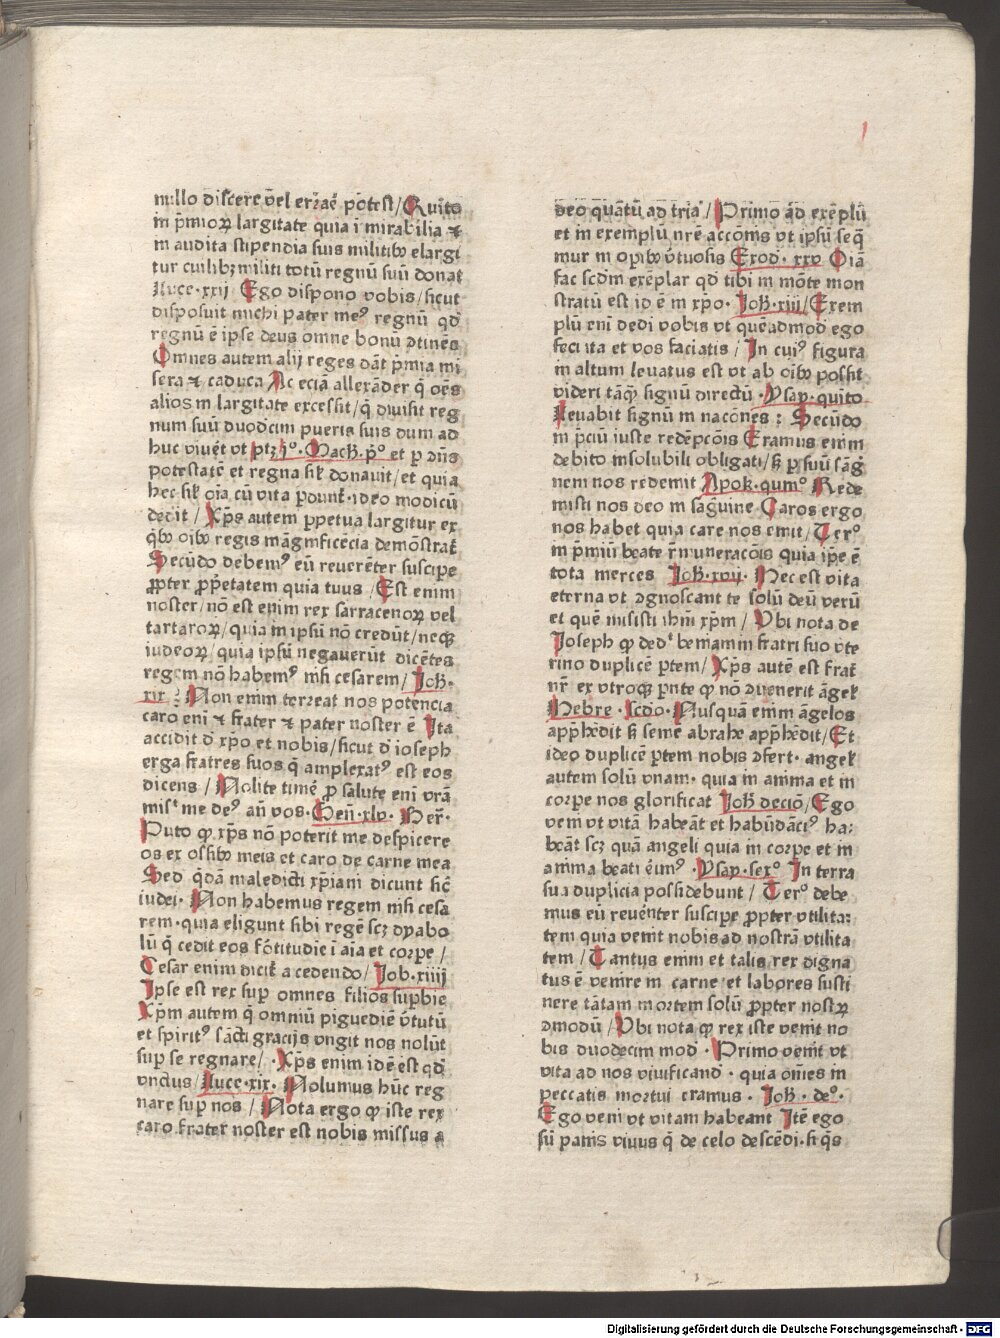 nullo discere vel errāe potest / Quīto
in p̄mioꝝ largitate quia ī mirabilia ⁊
in audita stipendia suis militibꝫ elargi
tur cuilibꝫ militi totū regnū suū donat
Luce·xxij Ego dispono vobis / sicut
disposuit michi pater meꝰ regnū qd̄
regnū ē ipse deus omne bonū ↄtinēs
Omnes autem alij reges dāt p̄mia mi
sera ⁊ caduca Ac eciā allexāder q̄ oēs
alios in largitate excessit / q̄ diuisit reg
num suū duodēcim pueris suis dum ad
huc viuēt vt ptꝫ jͦ· Mach̄·pͦ et p dn̄s
potestatē et regna sil̄r donauit / et quia
hec sil̄r oīa cū vita pdunt̄·ideo modicū
dedit / Xp̄s autem ppetua largitur ex
q̄bꝫ oībꝫ regis māgnificēcia demōstrat̄
Secūdo debemꝰ eū reuerēter suscipe
ꝓpter ꝓp̄etatem quia tuus / Est enim
noster / nō est enim rex sarracenoꝝ vel
tartaroꝝ / quia in ipsū nō credūt / neqꝫ
iudeoꝝ / quia ipsū negauerūt dicētes
regem nō habemꝰ nisi cesarem / Joh̄·
xix · Non enim terreat nos potencia
caro enī ⁊ frater ⁊ pater noster ē Ita
accidit d̄ xp̄o et nobis / sicut d̄ ioseph
erga fratres suos q̄ amplexatꝰ est eos
dicens / Nolite timē ꝓ salute enī vr̄ā
misᵗ me deꝰ an̄ vos·Gen̄·xlv· Ber̄·
Puto ꝙ xp̄s nō poterit me despicere
os ex ossibꝫ meis et caro de carne mea
Sed q̄dā maledicti xp̄iani dicunt sic̄
iudei· Non habemus regem nisi cesa
rem·quia eligunt sibi regē scꝫ dyabo
lū q̄ cedit eos fōrtitudie ī aīa et corpe /
Cesar enim dicit̄ a cedendo / Job·xiiij
Ipse est rex sup omnes filios supbie
Xp̄m autem q̄ omniū piguediē v̄tutū
et spiritꝰ sācti gracijs vngit nos nolūt
sup se regnare / ·Xp̄s enim idē est qd̄
vnctus / Luce·xix· Nolumus hūc reg
nare sup nos / Nota ergo ꝙ iste rex
caro frater noster est nobis missus a
deo quātū ad tria / Primo ad exēplū
et in exemplū nr̄e accōnis vt ipsū seq̄
mur in opibꝫ v̄tuosis Exod̄·xxv Oīa
fac scd̄m exēplar qd̄ tibi in mōte mon
stratū est id ē in xp̄o· Joh̄·xiij / Exem
plū enī dedi vobis vt quēadmod̄ ego
feci ita et vos faciatis / In cuiꝰ figura
in altum leuatus est vt ab oībꝫ possit
videri tāq̄ signū directū ·Ysay·quīto
Leuabit signū in nacōnes : Secūdo
in p̄ciū iuste redēpcōis Eramus enim
debito insolubili obligati / sꝫ p suū sāḡ
nem nos redemit Apok·quinͦ Rede
misti nos deo in sāguine Caros ergo
nos habet quia care nos emit / Terͦ
in p̄miū beate r̄muneracōis quia ip̄e ē
tota merces Joh̄·xvij· Hec est vita
eterna vt ↄgnoscant te solū deū verū
et quē misisti ih̄m xp̄m / Vbi nota de
Joseph ꝙ dedᵗ beniamin fratri suo vte
rino duplicē ptem / Xp̄s autē est frat̄
nr̄ ex vtroqꝫ pnte ꝙ nō ↄuenerit āgel̄
Hebre·Scd̄o· Nusquā enim āgelos
app̄hēdit sꝫ semē abrahe app̄hēdit / Et
ideo duplicē ptem nobis ↄfert· angel̄
autem solū vnam· quia in anima et in
corpe nos glorificat Joh̄ decīo / Ego
veni vt vitā habeāt et habūdāciꝰ ha:
beāt scꝫ quā angeli quia in corpe et in
anima beati erimꝰ ·Ysay·sexͦ In terra
sua duplicia possidebunt / Terͦ debe
mus eū reuēnter suscipe ꝓpter vtilita:
tem quia venit nobis ad nostrā vtilita
tem / Tantus enim et talis rex digna
tus ē venire in carne et labores susti
nere tātam mortem solū ꝓpter nostꝝ
ↄmodū / Vbi nota ꝙ rex iste venit no
bis duodecim mod̄·Primo venit vt
vita ad nos viuificand̄· quia om̄es in
peccatis mortui eramus· Joh̄·deͦ·
Ego veni vt vitam habeant Itē ego
sū panis viuus q̄ de celo descēdi·si q̄s
1
Digitalisierung gefördert durch die Deutsche Forschungsgemeinschaft · DFG